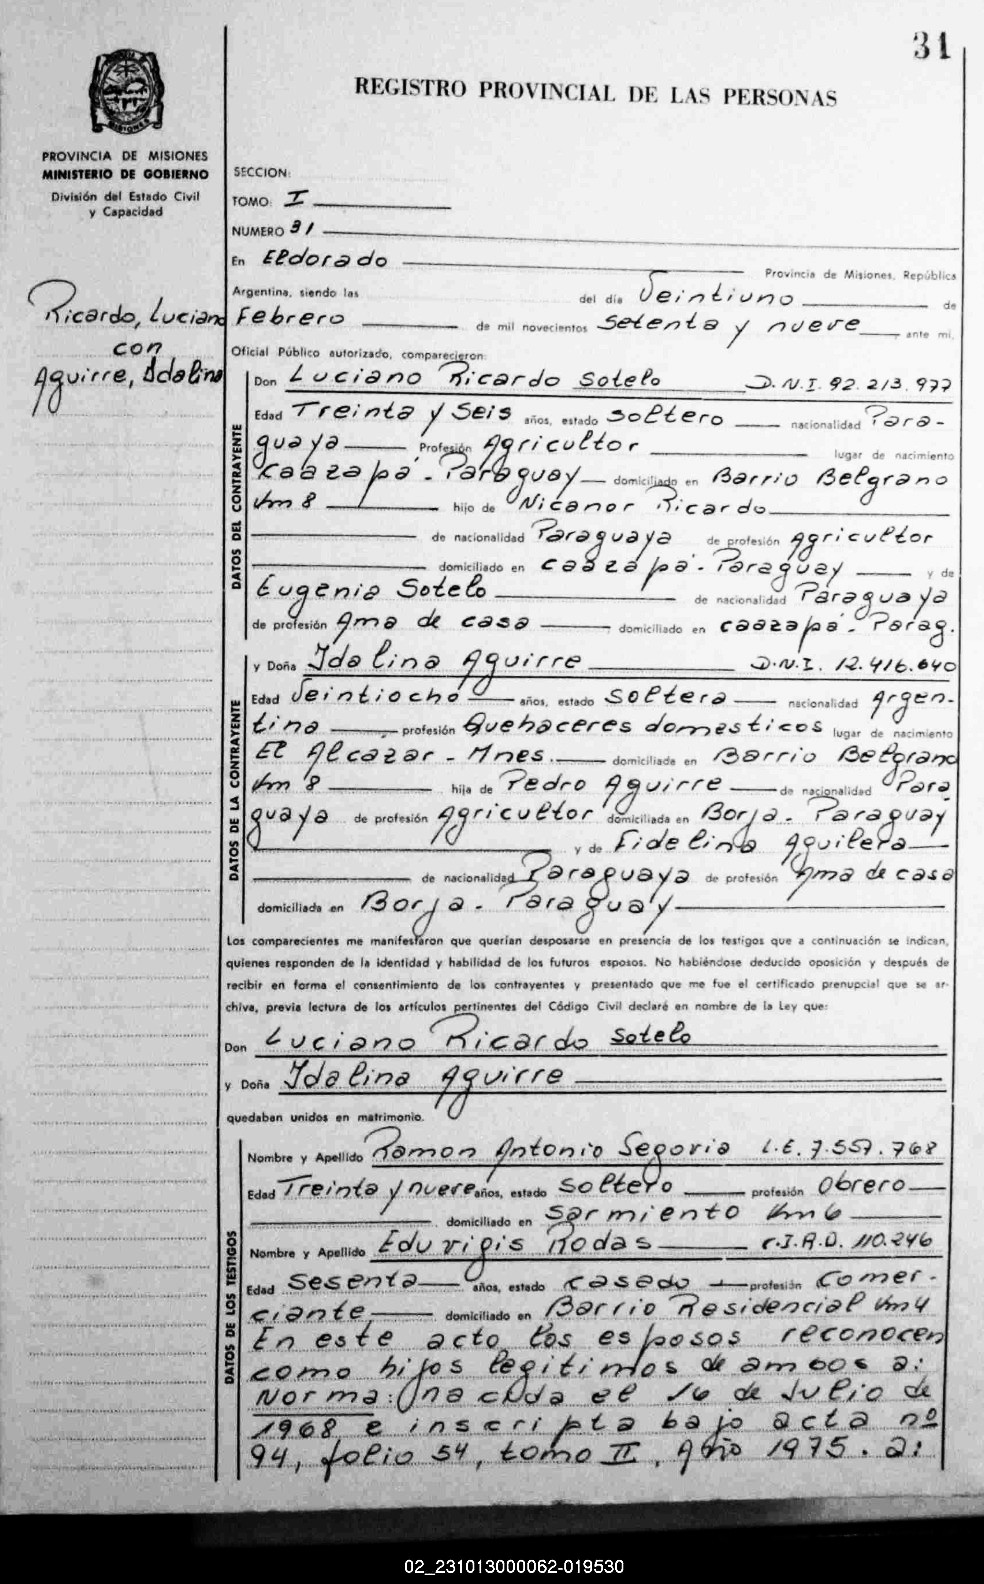 31
REGISTRO PROVINCIAL DE LAS PERSONAS
MISIONES
PROVINCIA DE MISIONES
MINISTERIO DE GOBIERNO
División del Estado Civil
y Capacidad
Ricardo, Luciano
con
Aguirre, Idalina
SECCION:
TOMO: I
NUMERO 31
En Eldorado Provincia de Misiones, República
Argentina, siendo las del día Veintiuno de
Febrero de mil novecientos Setenta y nueve ante mi,
Oficial Público autorizado, comparecieron:
DATOS DEL CONTRAYENTE
Don Luciano Ricardo Sotelo D.N.I. 92.213.977
Edad Treinta y Seis años, estado Soltero nacionalidad Para-
guaya Profesión Agricultor lugar de nacimiento
Caazapá - Paraguay domiciliado en Barrio Belgrano
Km 8 hijo de Nicanor Ricardo
de nacionalidad Paraguaya de profesión Agricultor
domiciliado en Caazapá - Paraguay y de
Eugenia Sotelo de nacionalidad Paraguaya
de profesión Ama de casa domiciliado en Caazapá - Parag.
DATOS DE LA CONTRAYENTE
y Doña Idalina Aguirre D.N.I. 12.416.640
Edad Veintiocho años, estado Soltera nacionalidad Argen-
tina profesión Quehaceres domesticos lugar de nacimiento
El Alcazar - Mnes. domiciliada en Barrio Belgrano
Km 8 hija de Pedro Aguirre de nacionalidad Para
guaya de profesión Agricultor domiciliada en Borja - Paraguay
y de Fidelina Aguilera
de nacionalidad Paraguaya de profesión Ama de casa
domiciliada en Borja - Paraguay
Los comparecientes me manifestaron que querían desposarse en presencia de los testigos que a continuación se indican,
quienes responden de la identidad y habilidad de los futuros esposos. No habiéndose deducido oposición y después de
recibir en forma el consentimiento de los contrayentes y presentado que me fue el certificado prenupcial que se ar-
chiva, previa lectura de los artículos pertinentes del Código Civil declaré en nombre de la Ley que:
Don Luciano Ricardo Sotelo
y Doña Idalina Aguirre
quedaban unidos en matrimonio.
DATOS DE LOS TESTIGOS
Nombre y Apellido Ramon Antonio Segovia L.E. 7.557.768
Edad Treinta y nueve años, estado Soltero profesión Obrero
domiciliado en Sarmiento Km 6
Nombre y Apellido Eduvigis Rodas C.I.R.D. 110.246
Edad Sesenta años, estado Casado profesión Comer-
ciante domiciliado en Barrio Residencial Km 4
En este acto los esposos reconocen
como hijos legitimos de ambos a:
Norma: Nacida el 16 de Julio de
1968 e inscripta bajo acta nº
94, folio 54, tomo II, Año 1975. a:
02_231013000062-019530